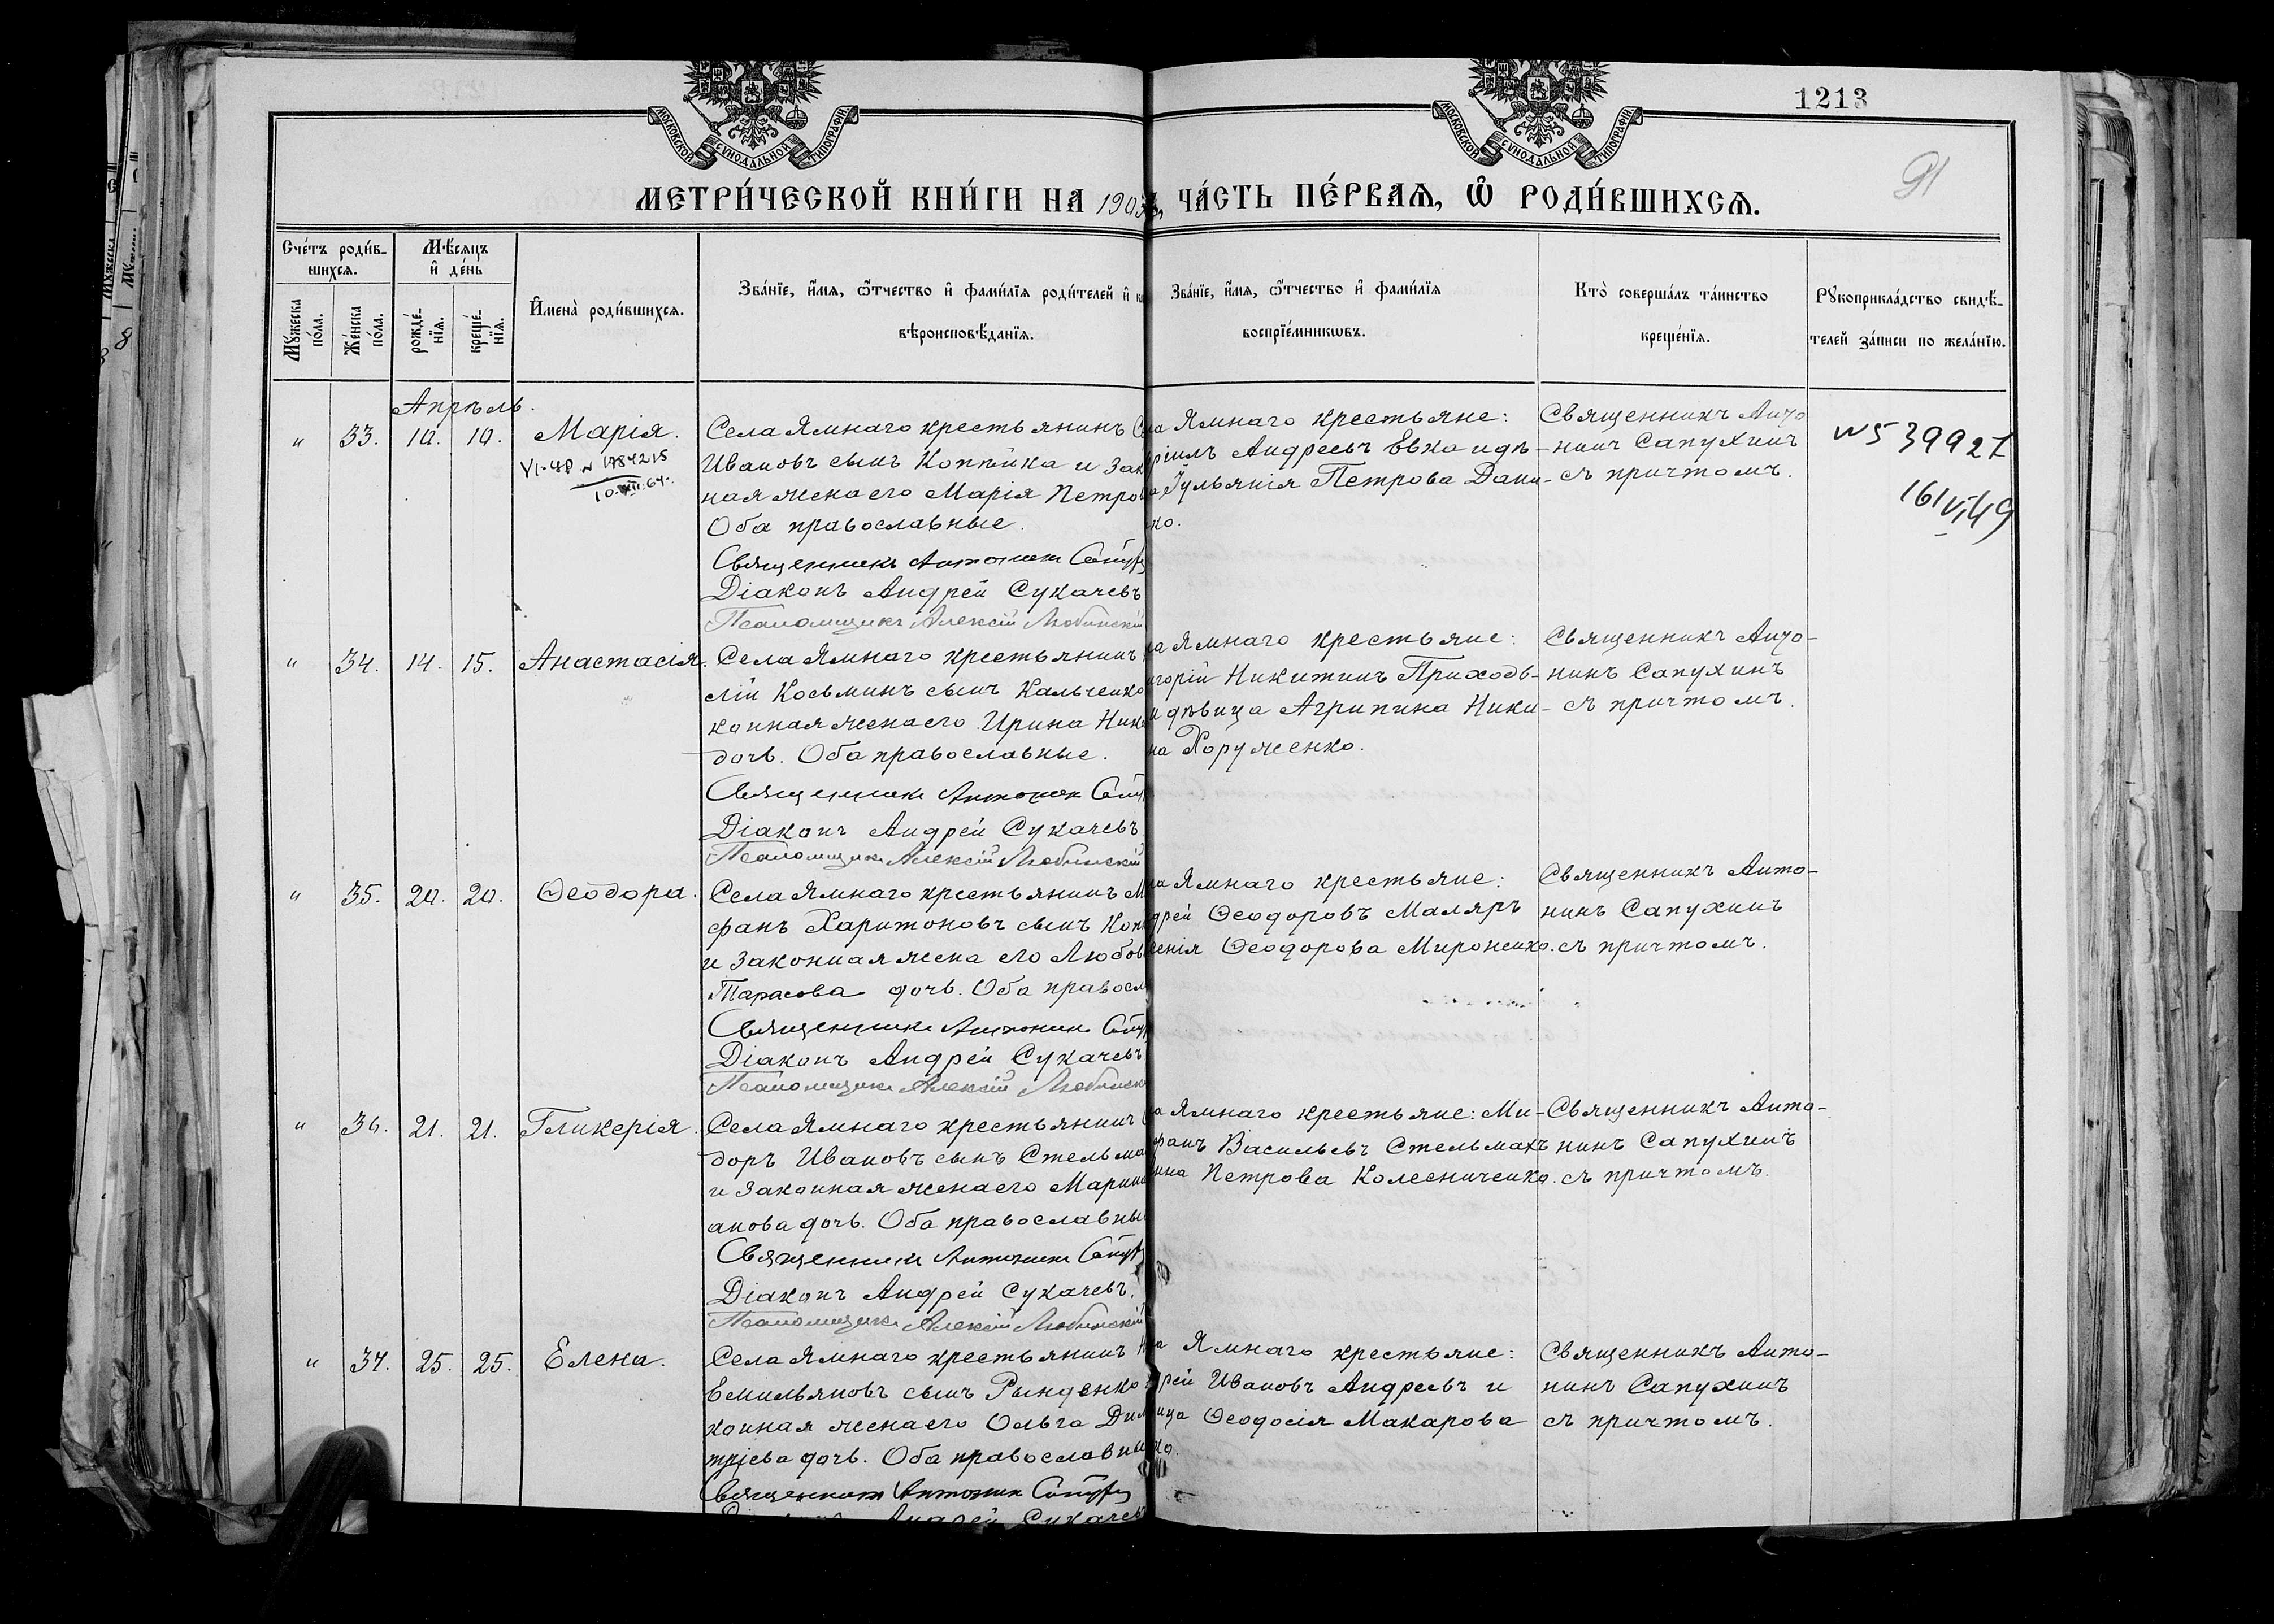 1213
91
МОСКОВСКОЙ СѴНОДАЛЬНОЙ ТИПОГРАФІИ.
МОСКОВСКОЙ СѴНОДАЛЬНОЙ ТИПОГРАФІИ.
МЕТРИ́ЧЕСКОЙ КНИ́ГИ НА 1903 ЧА́СТЬ ПЕ́РВАѦ, Ѡ РОДИ́ВШИХСѦ.
Сче́тъ роди́в-
шихсѧ.
Мꙋ́жеска по́ла.
Же́нска по́ла.
Мѣ́сѧцъ
и҆ де́нь
рожде́-
нїѧ.
креще́-
нїѧ.
И҆мена̀ роди́вшихсѧ.
Зва́нїе, и҆́мѧ, ѻ҆́тчество и҆ фами́лїѧ роди́телей и҆
вѣроисповѣ́данїѧ.
Зва́нїе, и҆́мѧ, ѻ҆́тчество и҆ фами́лїѧ
воспрїе́мникѡвъ.
Кто̀ соверша́лъ та́инство
креще́нїѧ.
Рꙋкоприкла́дство свидѣ́-
телей за́писи по жела́нїю.
Апрѣль.
" 33. 10. 10. Марія.
Села Ямнаго крестьянинъ
Ивановъ сынъ Коптика и зак
ная жена его Марія Петров
Оба православные.
Священникъ Антонин Сапух
Діаконъ Андрей Сукачевъ
Псаломщикъ Алексій Любинскій
ла Ямнаго крестьяне:
ріилъ Андреевъ Евка и дѣ-
а Іульянія Петрова Дани-
ко.
Священникъ Анто
нинъ Сапухинъ
съ причтомъ.
VI-УР № 1784215
10.XII.64.
№539927
161 VI 49
" 34. 14. 15. Анастасія.
Села Ямнаго крестьянинъ
сій Косьминъ сынъ Кальченко
конная жена его Ирина Ник
дочь. Оба православные.
Священникъ Антонин Сапу
Діаконъ Андрей Сукачевъ
Псаломщикъ Алексій Любинскій
ла Ямнаго крестьяне:
игорій Никитинъ Приходь-
и дѣвица Агрипина Ники-
на Хоруженко.
Священникъ Анто-
нинъ Сапухинъ
съ причтомъ.
" 35. 20. 20. Ѳеодора.
Села Ямнаго крестьянинъ М
фанъ Харитоновъ сынъ Коп
и законная жена его Любов
Тарасова дочь. Оба правосл
Священникъ Антонин Сапу
Діаконъ Андрей Сукачевъ
Псаломщикъ Алексій Любинск
ла Ямнаго крестьяне:
дрей Ѳеодоровъ Маляръ
сенія Ѳеодорова Мироненко.
Священникъ Анто-
нинъ Сапухинъ
съ причтомъ.
" 36. 21. 21. Гликерія.
Села Ямнаго крестьянинъ
доръ Ивановъ сынъ Стельма
и законная жена его Марина
анова дочь. Оба православны
Священникъ Антонин Сапух
Діаконъ Андрей Сукачевъ.
Псаломщикъ Алексій Любинскій
ла Ямнаго крестьяне: Ми-
фанъ Васильевъ Стельмахъ
ина Петрова Колесниченко.
Священникъ Анто-
нинъ Сапухинъ
съ причтомъ.
" 37. 25. 25. Елена.
Села Ямнаго крестьянинъ
Емильяновъ сынъ Рынденко
конная жена его Ольга Дим
тріева дочь. Оба православны
Священникъ Антонин Сапух
Андрей Сукачев
ла Ямнаго крестьяне:
дрей Ивановъ Андреевъ и
ица Ѳеодосія Макарова
ко.
Священникъ Анто-
нинъ Сапухинъ
съ причтомъ.